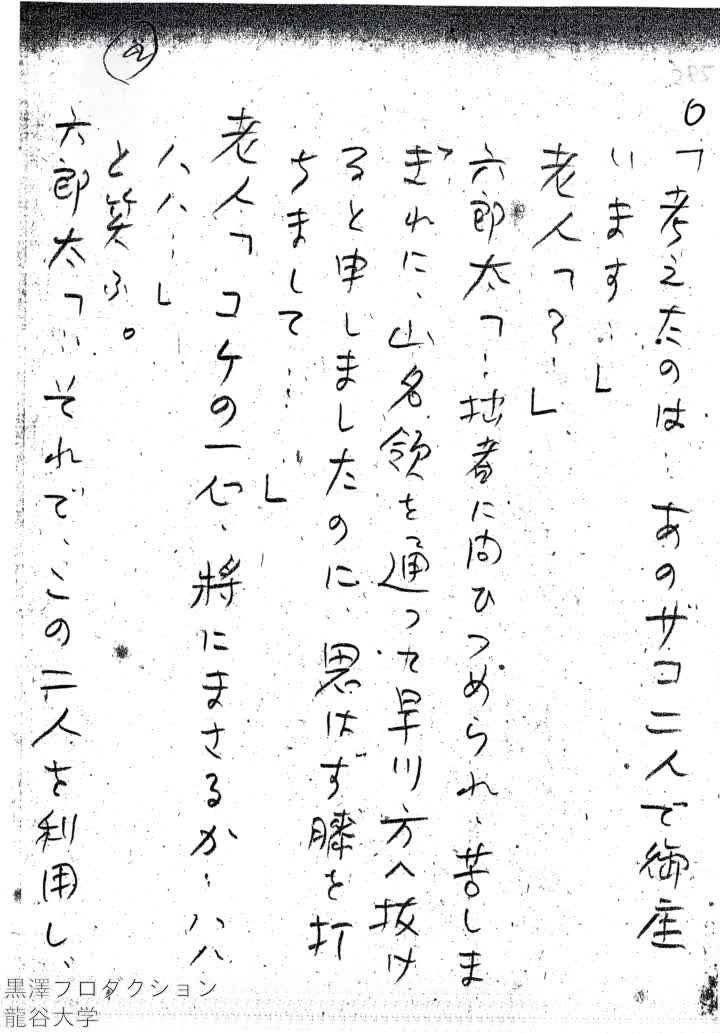 ②
○「考えたのは… あのザコ二人で御座
います…」
老人「?…」
六郎太「… 拙者に問ひつめられ、苦しま
ぎれに、山名領を通つて早川方へ抜け
ると申しましたのに、思はず膝を打
ちまして……」
老人「コケの一心、将にまさるか… ハハ
ハハ…」
と笑ふ。
六郎太「… それで、この二人を利用し、
黒澤プロダクション
龍谷大学